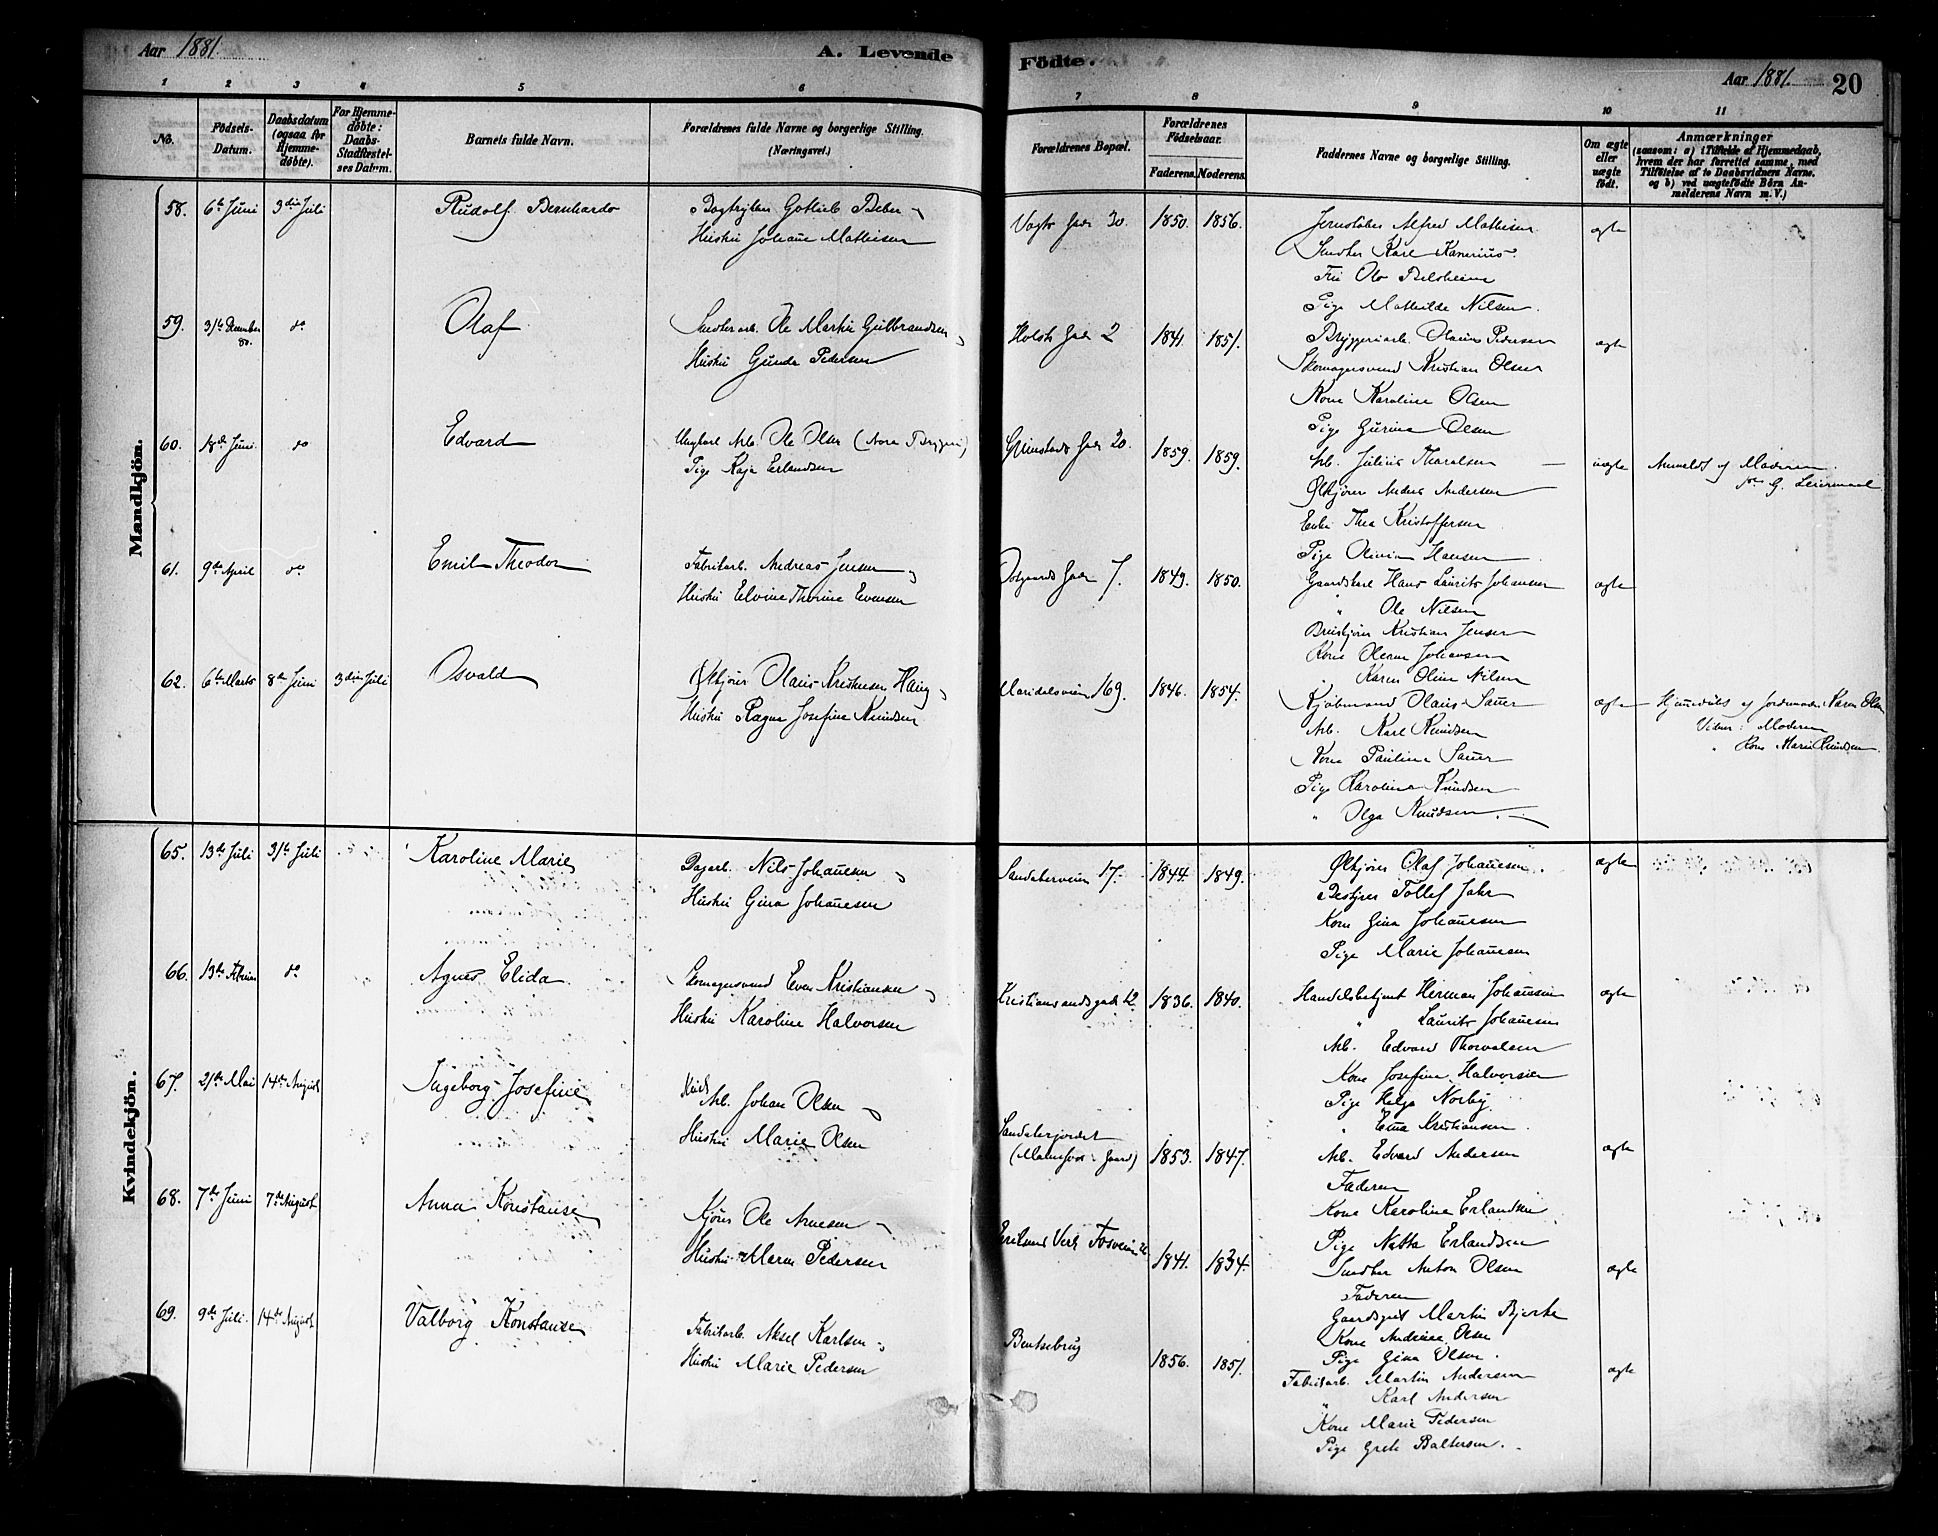 Aar 1881.
A. Levende Födte.
Aar 1881.
20
1 2 3 4 5 6 7 8 9 10 11
No.
Födsels-Datum.
Daabsdatum (ogsaa for Hjemme-döbte).
For Hjemme-döbte: Daabs-Stadfæstel-ses Datum.
Barnets fulde Navn.
Forældrenes fulde Navne og borgerlige Stilling. (Næringsvei.)
Forældrenes Bopæl.
Forældrenes Födselsaar.
Faderens. Moderens.
Faddernes Navne og borgerlige Stilling.
Om ægte eller uægte födt.
Anmærkninger
(saasom: a) i Tilfælde af Hjemmedaab,
hvem der har forrettet samme, med
Tilföielse af to Daabsvidners Navne.
og b) ved uægtefödte Börn An-
melderens Navn m.V.)
Mandkjön.
58. 6te Juni 3die Juli Rudolf Bernhard Gottlieb
Huskú Johane Mathisen
Vogts Gade 30. 1850. 1856. ægte
Alfred Mathisen
Smedker Karl
Frú
Pige Mathilde Nilsen.
59. 31te December 80. do Olaf Ole Martin Gulbrandsen
Huskú Gunda Pedersen
Holsts Gade 2 1841. 1851. ægte
Bryggeriarb. Olaus Pedersen
Skomagersvend Kristian Olsen
Kone Karoline Olsen
Pige Gurine Olsen
60. 18de Juni. do Edvard Ungkarl Arb. Ole Olsen (Nora Bryggeri)
Pige Kaja Erlandsen
Grimstads Gade 20. 1859. 1859. uægte
Arb. Julius Tharalsen
Ølkjører Anders Andersen
Enke Thea Kristoffersen
Pige Olivia Hansen
Anmeldt af Moderen
G. Leiermaal
61. 9de April do Emil Theodor Fabrikarb. Andreas Jensen
Huskú Elvine Thorine Evensen
Gade 7. 1849. 1850. ægte
Gaardskarl Hans Laurits Johansen
" Ole Nilsen
Kristian Jensen
Kone Oleane Johansen
" Karen Oline Nilsen
62. 6te Marts 8de Juni 3die Juli Osvald Ølkjører Olaus Kristensen Haug
Huskú Ragna Josefine Knudsen
Maridalsveien 169. 1846. 1854. ægte
Kjøbmand Olaus Sauer
Arb. Karl Knudsen
Kone Pauline Sauer
Pige Karoline Knudsen
" Olga Knudsen.
Hjemmedøbt af Jordemoder Karen Olsen
Vidner: Moderen
" Kone Marie Knudsen
Kvindekjön.
65. 13de Juli 31te Juli Karoline Marie Dagarb. Nils Johanesen
Huskú Gina Johanesen
Sandakerveien 17. 1844. 1849. ægte
Ølkjører Olaf Johanesen
Bestyrer Tollef Jahr
Kone Gina Johanesen
Pige Marie Johanesen
66. 13de Februar do Agnes Elida Skomagersvend Even Kristiansen
Huskú Karoline Halvorsen
Kristiansandsgade 12 1836. 1840. ægte
Handelsbetjent Herman Johansen
" Laurits Johanesen
Arb. Edvard Thorvalsen
Kone Josefine Halvorsen
Pige Helga Norby
" Emma Kristiansen.
67. 21de Mai 14de August Ingeborg Josefine
Arb. Johan Olsen
Huskú Marie Olsen
Sandakerjordet
1853. 1847. ægte
Arb. Edvard Andersen
Faderen
Kone Karoline Erlandsen
Pige Netta Erlandsen
68. 7de Juni 7de August Anna Konstanse Kjører Ole Arnesen
Huskú Maren Pedersen
Fosveien
1841. 1834. ægte
Smedker Anton Olsen
Faderen
Gaardsgut Martin Bjerke
Kone Andrine Olsen
Pige Gina Olsen.
69. 9de Juli. 14de August Valborg Konstanse Fabrikarb. Aksel Karlsen
Huskú Marie Pedersen
Bentsebrug
1856. 1851. ægte
Fabrikarb. Martin Andersen
" Karl Andersen
Kone Marie Pedersen
Pige Grete Baltersen.